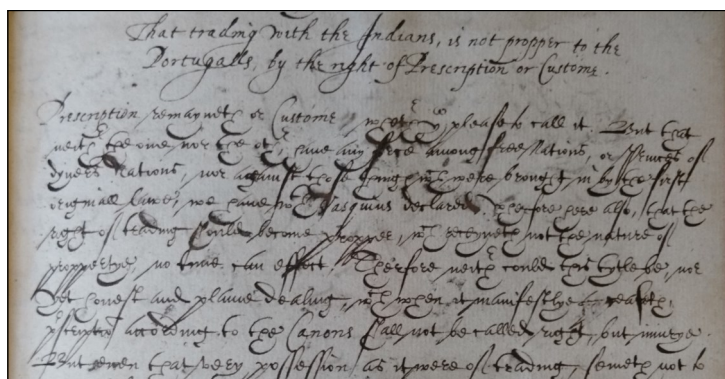 That trading with the Indians, is not propper to the
Portugalls, by the right of Prescription or Custome.
Prescription remayneth or Custome, wch ever you please to call it. But that
neith the one nor the oth, have any force among free Nations, or Princes of
dyvers Nations, nor against those things wch were brought in by the first
originall lawe, we have wth Vasquius declared. Wherfore here also, that the
right of trading should become propper, wch receyveth not the nature of
propperty, no time can effect. Therfore neith could this tytle be, nor
yet honest and playne dealing, wch when it manifestlye ceaseth,
pscriptio according to the Canons shall not be called right, but iniurye.
But even that very possession as it were of trading, semeth not to